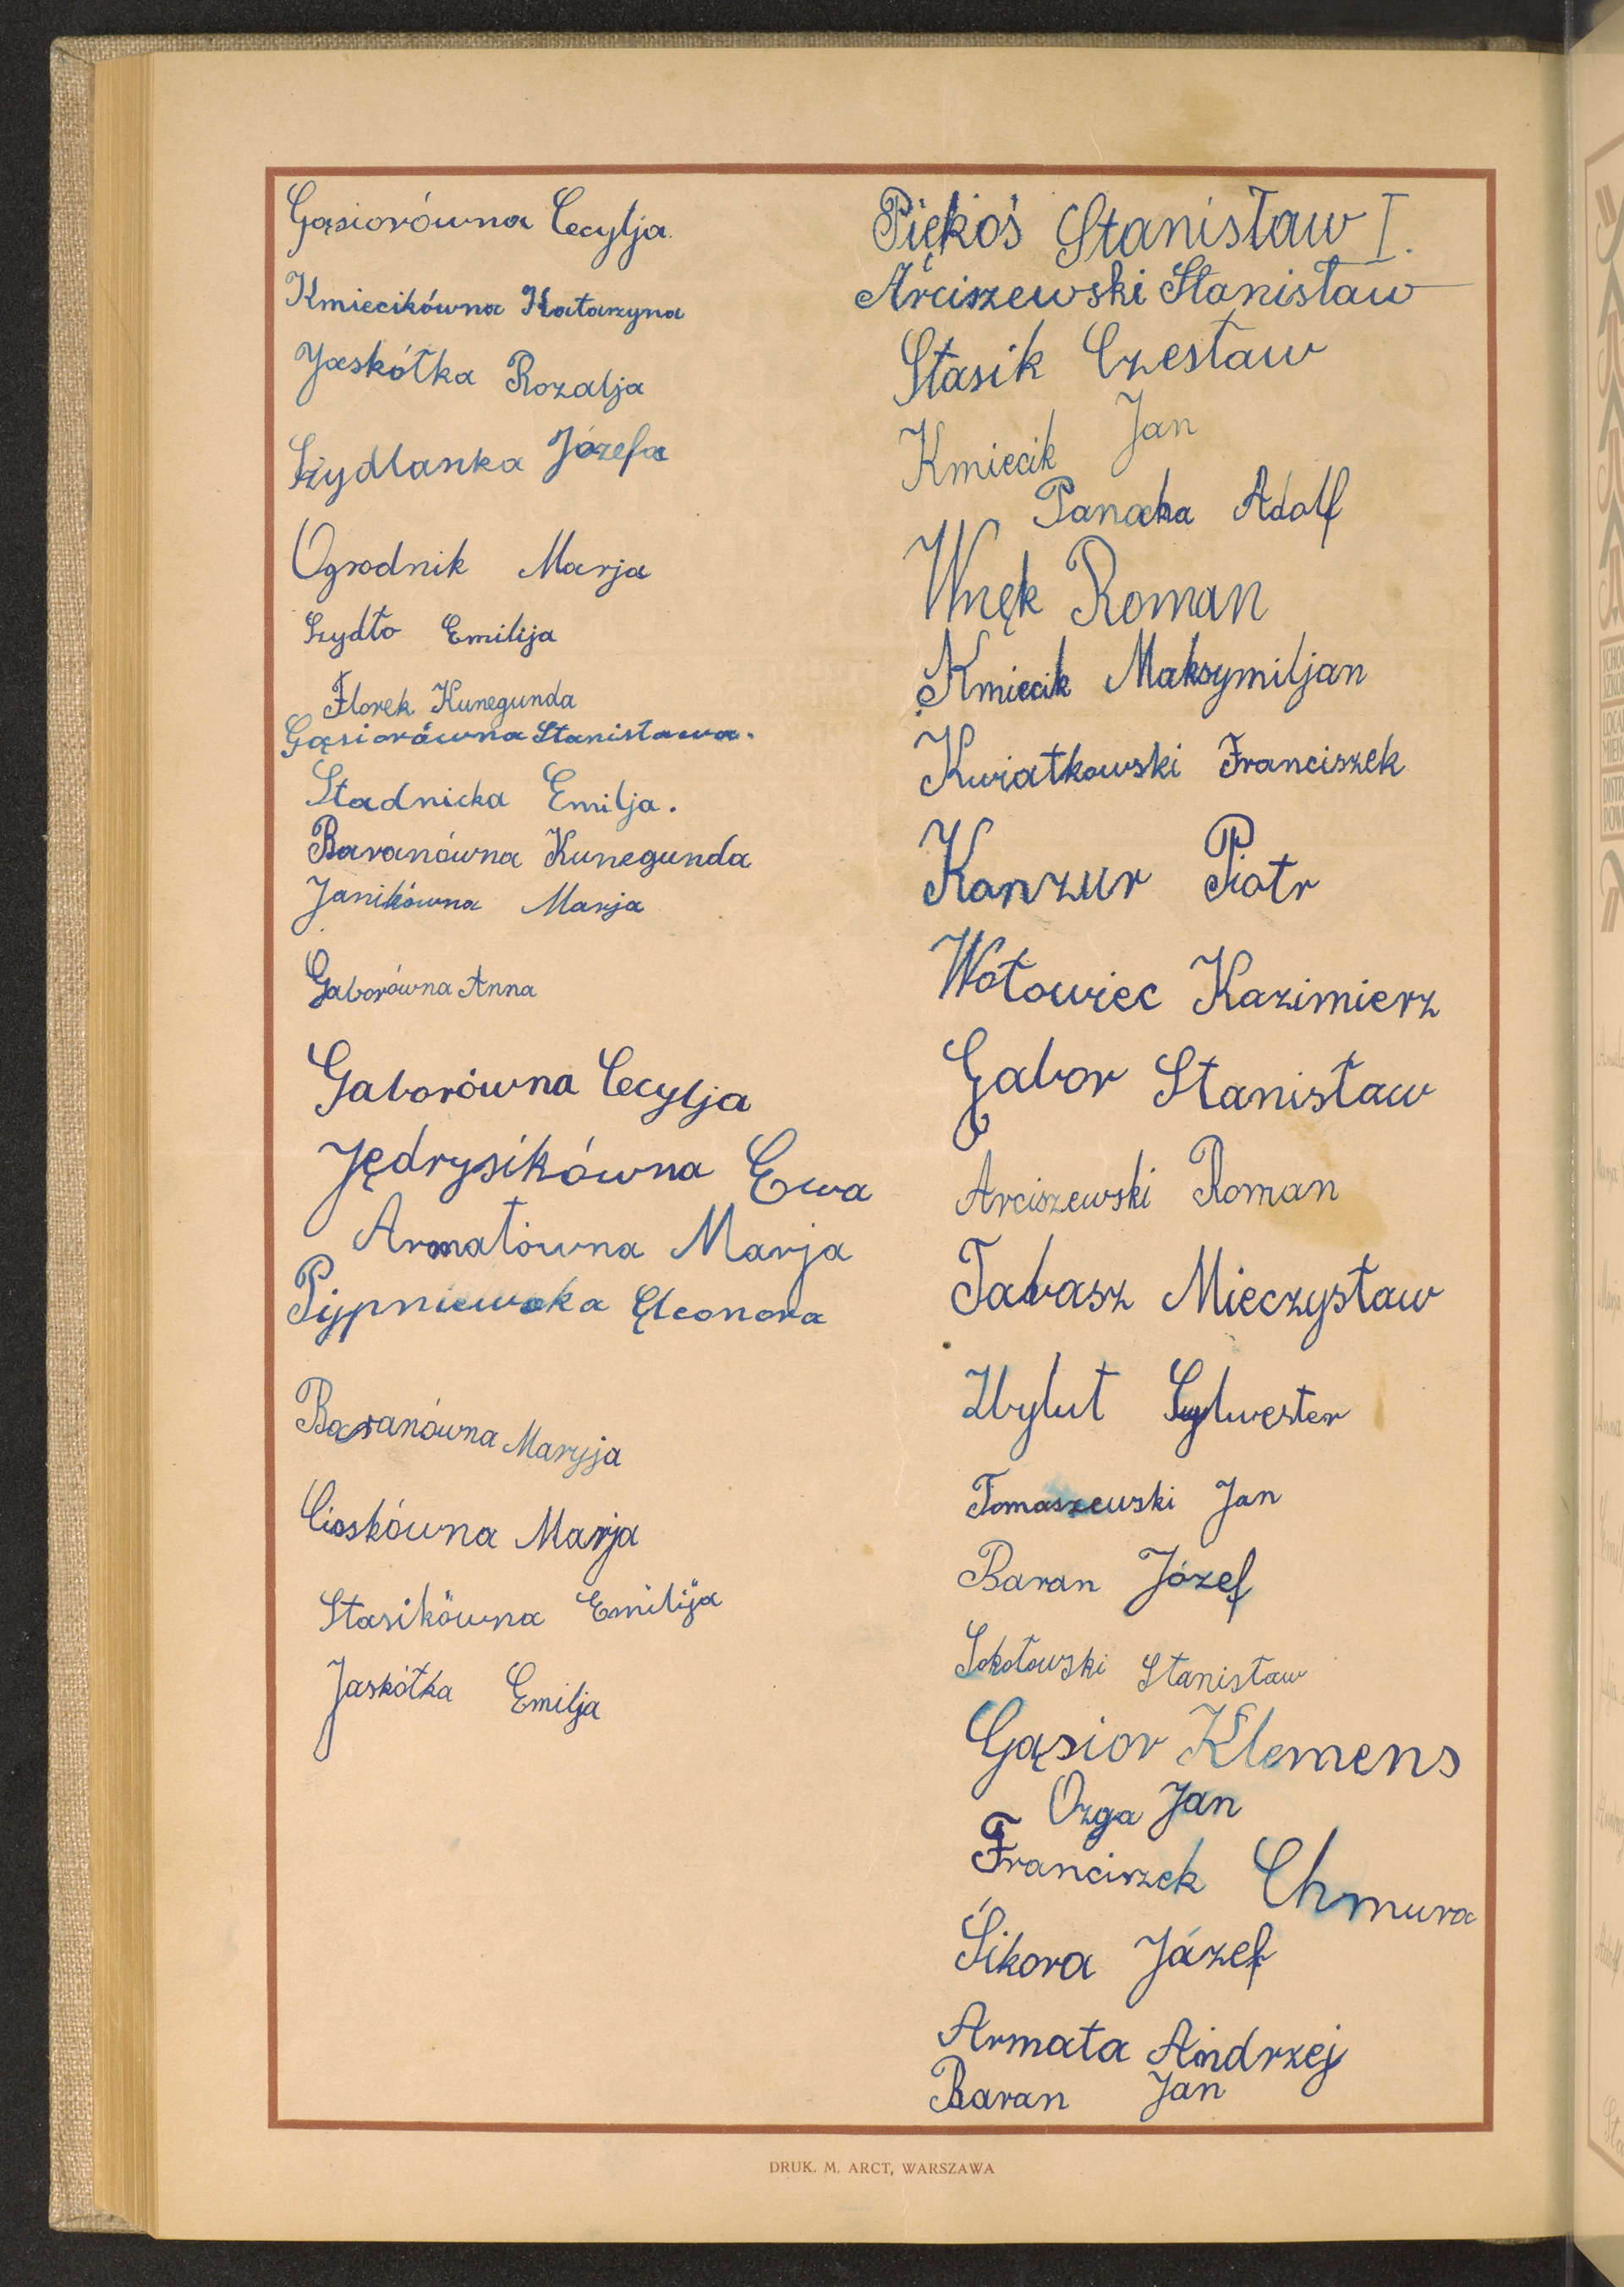 Gąsiorówna Cecylja.
Kmiecikówna Katarzyna
Jaskółka Rozalja
Szydlanka Józefa
Ogrodnik Marja
Szydło Emilija
Florek Kunegunda
Gąsiorówna Stanisława.
Stadnicka Emilja.
Baranówna Kunegunda
Janikówna Marja
Gaborówna Anna
Gaborówna Cecylja
Jędrysikówna Ewa
Armatówna Marja
Eleonora
Baranówna Maryja
Cioskówna Marja
Stasikówna Emilija
Jaskółka Emilja
Piękoś Stanisław I.
Arciszewski Stanisław
Stasik Czesław
Kmiecik Jan
Panocha Adolf
Wnęk Roman
Kmiecik Maksymiljan
Kwiatkowski Franciszek
Kanzur Piotr
Wołowiec Kazimierz
Gabor Stanisław
Arciszewski Roman
Tabasz Mieczysław
Zbylut Sylwester
Tomaszewski Jan
Baran Józef
Sokołowski Stanisław
Gąsior Klemens
Ozga Jan
Franciszek Chmura
Sikora Józef
Armata Andrzej
Baran Jan
DRUK. M. ARCT, WARSZAWA